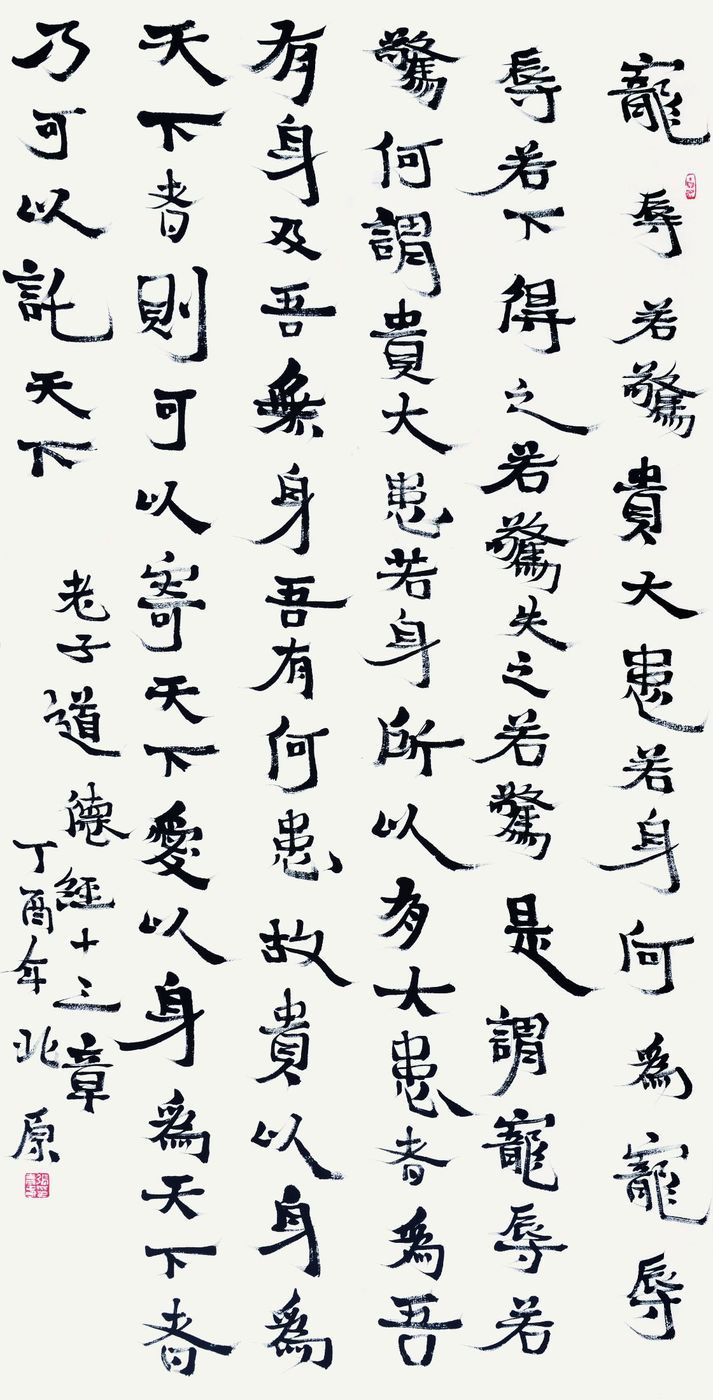 寵辱若驚貴大患若身何為寵辱
辱若下得之若驚失之若驚是謂寵辱若
驚何謂貴大患若身所以有大患者為吾
有身及吾無身吾有何患故貴以身為
天下者則可以寄天下愛以身為天下者
乃可以託天下
老子道德經十三章
丁酉年北原